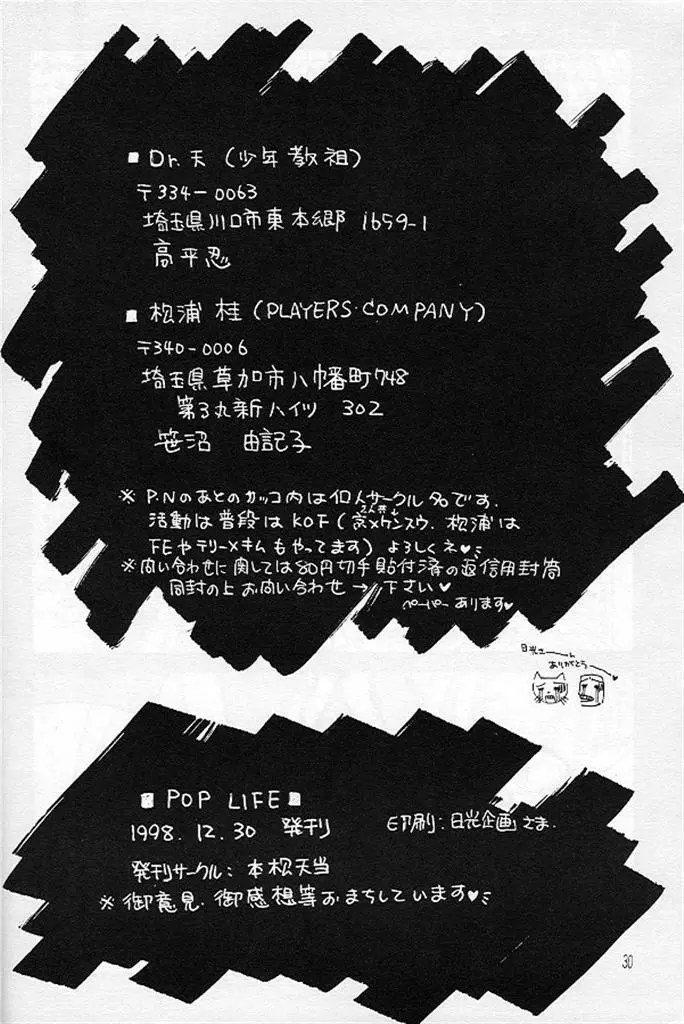 ■ Dr.天 (少年教祖)
〒334-0063
埼玉県川口市東本郷 1659-1
高平忍
■ 松浦 桂 (PLAYERS・COMPANY)
〒340-0006
埼玉県草加市八幡町748
第3丸新ハイツ 302
笹沼 由記子
※ P.Nのあとのカッコ内は個人サークル名です.
活動は普段はKOF(京×ケンスウ. 松浦は
2人共↓
FEやテリー×キムもやってます) よろしくネ♥ミ
※問い合わせに関しては80円切手貼付済の返信用封筒
同封の上お問い合わせ→下さい♥
ペーパーあります♥
日光さーん
ありがとう♥
■ POP LIFE ■
1998. 12. 30 発刊
印刷: 日光企画さま.
発刊サークル: 本松天当
※ 御意見. 御感想等おまちしています♥ミ
30